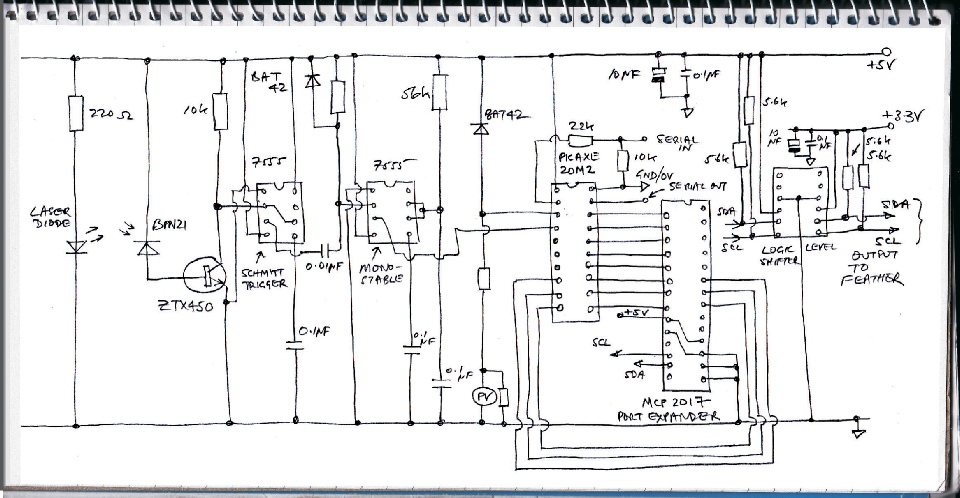 +5V
BAT
42
10µF
0.1µF
220Ω
10k
56k
BAT42
5.6k
+3.3V
22k
SERIAL
IN
PICAXE
20M2
10k
10
µF
0.1
µF
5.6k
5.6k
7555
7555
5.6k
GND/0V
SERIAL OUT
LASER
DIODE
BPW21
SDA
SCL
SDA
SCL
LOGIC LEVEL
SHIFTER
OUTPUT
TO
FEATHER
0.01µF
SCHMITT
TRIGGER
MONO-
STABLE
ZTX450
+5V
0.1µF
0.1
µF
SCL
SDA
0.1
µF
PV
MCP 2017
PORT EXPANDER